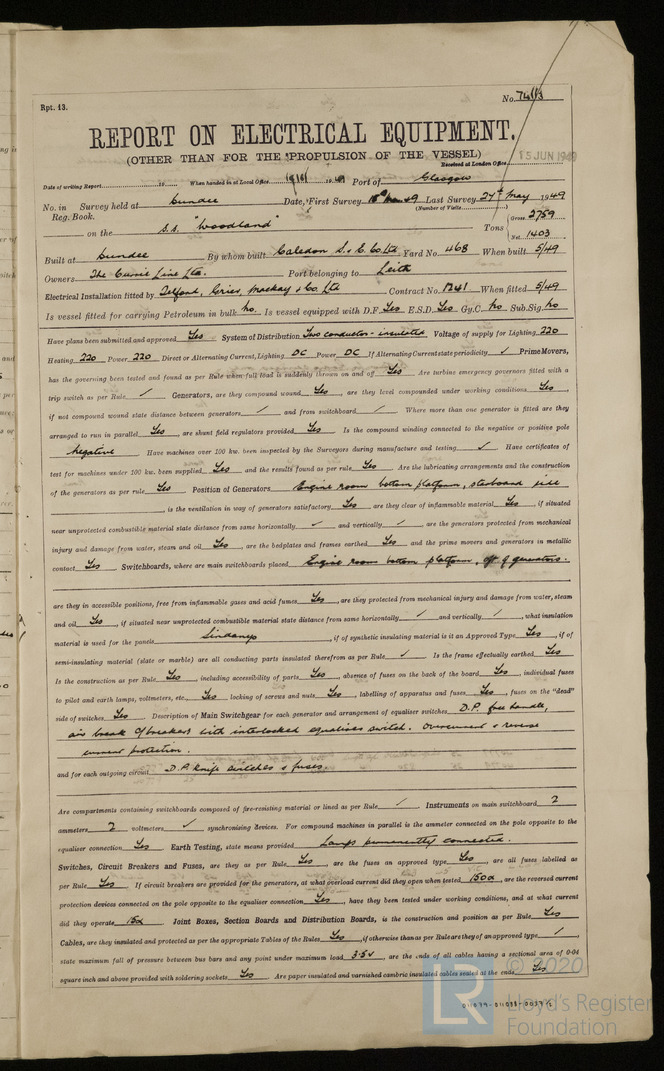 Rpt. 13.
No. 74113
REPORT ON ELECTRICAL EQUIPMENT.
(OTHER THAN FOR THE PROPULSION OF THE VESSEL)
Received at London Office 15 JUN 1949
Date of writing Report 19 When handed in at Local Office 19 Port of Glasgow
No. in Survey held at Dundee Date, First Survey Last Survey 27th May 1949
Reg. Book. (Number of Visits
on the s.s. "Woodland" Tons Gross 2759
Net 1403
Built at Dundee By whom built Caledon S. & E. Co Ltd Yard No. 468 When built 5/49
Owners The Currie Line Ltd. Port belonging to Leith
Electrical Installation fitted by Telford, Grier, Mackay & Co. Ltd Contract No. 1241 When fitted 5/49
Is vessel fitted for carrying Petroleum in bulk No. Is vessel equipped with D.F. Yes E.S.D. Yes Gy.C. No Sub.Sig. No
Have plans been submitted and approved Yes System of Distribution Two conductor - insulated Voltage of supply for Lighting 220
Heating 220 Power 220 Direct or Alternating Current, Lighting DC Power DC If Alternating Current state periodicity ✓ Prime Movers,
has the governing been tested and found as per Rule when full load is suddenly thrown on and off Yes Are turbine emergency governors fitted with a
trip switch as per Rule ✓ Generators, are they compound wound Yes, are they level compounded under working conditions Yes,
if not compound wound state distance between generators ✓ and from switchboard ✓ Where more than one generator is fitted are they
arranged to run in parallel Yes, are shunt field regulators provided Yes Is the compound winding connected to the negative or positive pole
Negative Have machines over 100 kw. been inspected by the Surveyors during manufacture and testing ✓ Have certificates of
test for machines under 100 kw. been supplied Yes and the results found as per rule Yes Are the lubricating arrangements and the construction
of the generators as per rule Yes Position of Generators Engine room bottom platform, starboard side
, is the ventilation in way of generators satisfactory Yes, are they clear of inflammable material Yes, if situated
near unprotected combustible material state distance from same horizontally ✓ and vertically ✓, are the generators protected from mechanical
injury and damage from water, steam and oil Yes, are the bedplates and frames earthed Yes and the prime movers and generators in metallic
contact Yes Switchboards, where are main switchboards placed Engine room bottom platform, aft of generators.
are they in accessible positions, free from inflammable gases and acid fumes Yes, are they protected from mechanical injury and damage from water, steam
and oil Yes, if situated near unprotected combustible material state distance from same horizontally ✓ and vertically ✓, what insulation
material is used for the panels Sindanyo, if of synthetic insulating material is it an Approved Type Yes, if of
semi-insulating material (slate or marble) are all conducting parts insulated therefrom as per Rule ✓ Is the frame effectually earthed Yes
Is the construction as per Rule Yes, including accessibility of parts Yes, absence of fuses on the back of the board Yes, individual fuses
to pilot and earth lamps, voltmeters, etc. Yes locking of screws and nuts Yes, labelling of apparatus and fuses Yes, fuses on the "dead"
side of switches Yes Description of Main Switchgear for each generator and arrangement of equaliser switches D.P. free handle,
air break c/breakers with interlocked equaliser switch. Overcurrent & reverse
current protection.
and for each outgoing circuit D.P. knife switches & fuses.
Are compartments containing switchboards composed of fire-resisting material or lined as per Rule ✓ Instruments on main switchboard 2
ammeters 2 voltmeters ✓ synchronising devices. For compound machines in parallel is the ammeter connected on the pole opposite to the
equaliser connection Yes Earth Testing, state means provided Lamps permanently connected.
Switches, Circuit Breakers and Fuses, are they as per Rule Yes, are the fuses an approved type Yes, are all fuses labelled as
per Rule Yes If circuit breakers are provided for the generators, at what overload current did they open when tested 150a, are the reversed current
protection devices connected on the pole opposite to the equaliser connection Yes, have they been tested under working conditions, and at what current
did they operate 15a Joint Boxes, Section Boards and Distribution Boards, is the construction and position as per Rule Yes
Cables, are they insulated and protected as per the appropriate Tables of the Rules Yes, if otherwise than as per Rule are they of an approved type ✓,
state maximum fall of pressure between bus bars and any point under maximum load 3.5v, are the ends of all cables having a sectional area of 0·04
square inch and above provided with soldering sockets Yes Are paper insulated and varnished cambric insulated cables sealed at the ends Yes
© 2020
LR
Lloyd's Register
Foundation
011079-011088-0027½